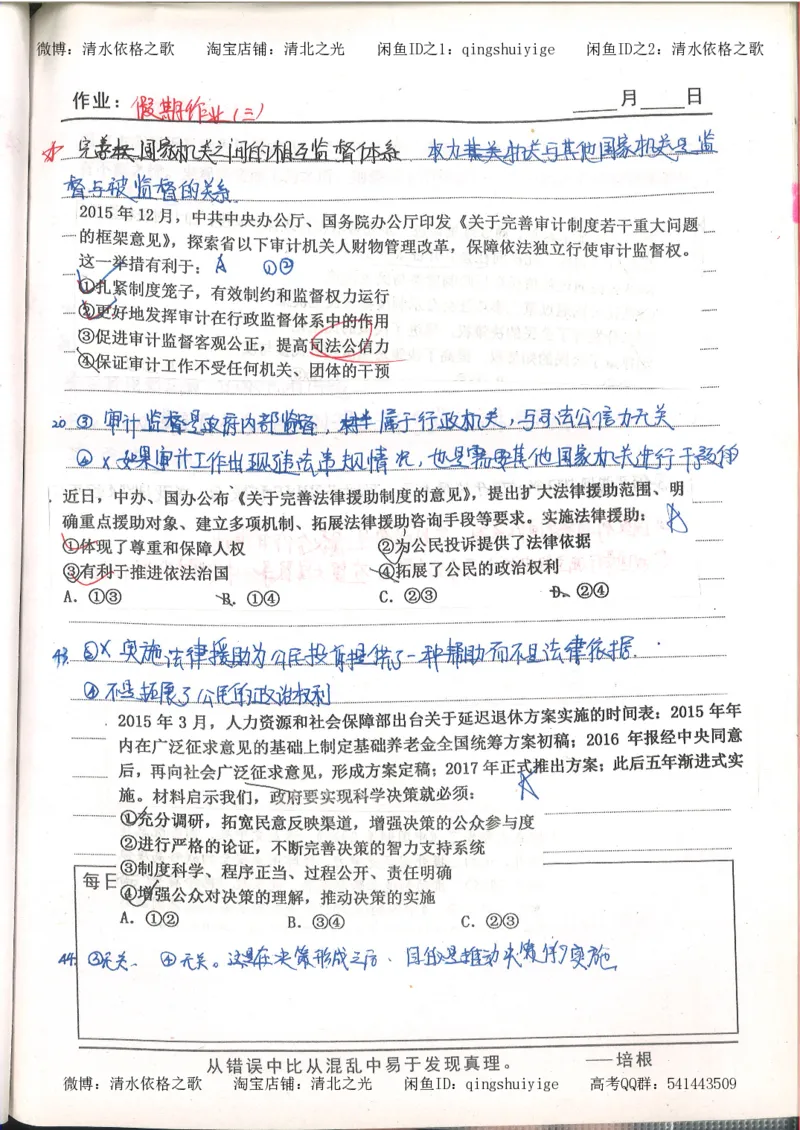 微博：清水依格之歌 淘宝店铺：清北之光 闲鱼ID之1：qingshuiyige 闲鱼ID之2：清水依格之歌
作业：假期作业（三） 月 日
完善 国家机关之间的相互监督体系 权力 机关与其他国家机关是监
督与被监督的关系
2015年12月，中共中央办公厅、国务院办公厅印发《关于完善审计制度若干重大问题
的框架意见》，探索省以下审计机关人财物管理改革，保障依法独立行使审计监督权。
这一举措有利于：A ①②
①扎紧制度笼子，有效制约和监督权力运行
②更好地发挥审计在行政监督体系中的作用
③促进审计监督客观公正，提高司法公信力
④保证审计工作不受任何机关、团体的干预
20 ③ 审计监督是政府内部监督， 属于行政机关，与司法公信力无关
④ × 如果审计工作出现违法违规情况，也是需要其他国家机关进行干预的
近日，中办、国办公布《关于完善法律援助制度的意见》，提出扩大法律援助范围、明
确重点援助对象、建立多项机制、拓展法律援助咨询手段等要求。实施法律援助：A
①体现了尊重和保障人权 ②为公民投诉提供了法律依据
③有利于推进依法治国 ④拓展了公民的政治权利
A．①③ B．①④ C．②③ D．②④
43. ②× 实施法律援助为公民投诉提供了一种帮助而不是法律依据．
④ 不是拓展了公民的政治权利
2015年3月，人力资源和社会保障部出台关于延迟退休方案实施的时间表：2015年年
内在广泛征求意见的基础上制定基础养老金全国统筹方案初稿；2016年报经中央同意
后，再向社会广泛征求意见，形成方案定稿；2017年正式推出方案；此后五年渐进式实
施。材料启示我们，政府要实现科学决策就必须： A
①充分调研，拓宽民意反映渠道，增强决策的公众参与度
②进行严格的论证，不断完善决策的智力支持系统
③制度科学、程序正当、过程公开、责任明确
每日
④增强公众对决策的理解，推动决策的实施
A．①② B．③④ C．②③
44. ③无关． ④无关。这是在决策形成之后，目的是推动决策的实施
从错误中比从混乱中易于发现真理。 ——培根
微博：清水依格之歌 淘宝店铺：清北之光 闲鱼ID：qingshuiyige 高考QQ群：541443509